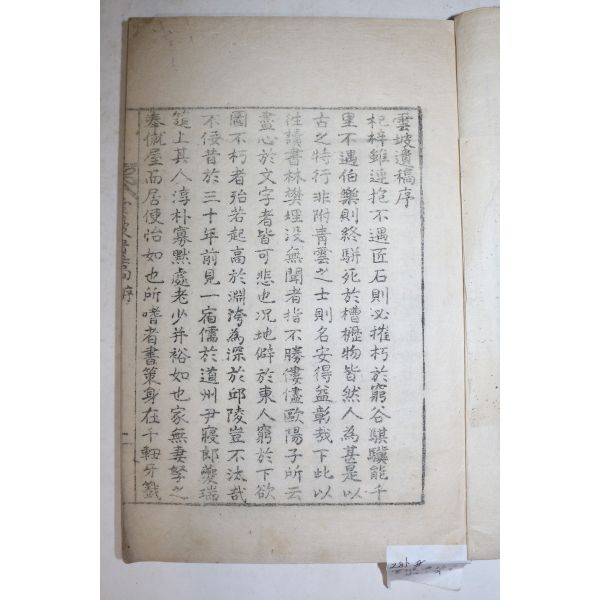 雲坡遺稿序
杞梓雖連抱不遇匠石則必摧朽於窮谷騏驥能千
里不遇伯樂則終騈死於槽櫪物皆然人為甚是以
古之特行非附青雲之士則名安得益彰哉下此以
往讀書林樊堙没無聞者指不勝僂儘歐陽子所云
盡心於文字者皆可悲也况地僻於東人窮於下欲
圖不朽者殆若起高於淵誇為深於邱陵豈不汰哉
不佞昔於三十年前見一宿儒於道州尹寢郎夔瑞
筵上其人淳朴寡黙處老少并裕如也家無妻孥之
奉僦屋而居便怡如也所嗜者書策身在千軸牙籤
雲坡遺稿序
一